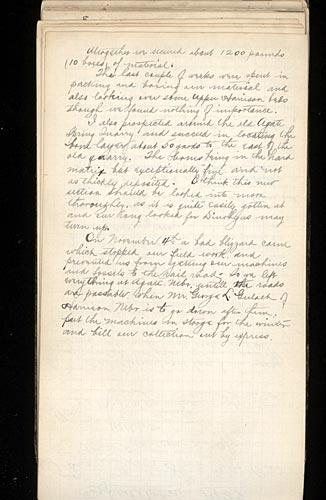 Altogether we secured about 1200 pounds
(10 boxes) of material.
The last couple of weeks were spent in
packing and boxing our material and
also looking over some Upper Harrison beds
though we found nothing of importance.
I also prospected around the old Agate
Spring Quarry and succeed in locating the
bone layer about 50 yards to the east of the
old quarry. The bones being in the hard
matrix but exceptionally fine and not
as thickly deposited. I think this new
section should be looked into more
thoroughly, as it is quite easily gotten at
and our long looked for Dinohyus may
turn up.
On November 4th a bad blizzard came
which stopped our field work and
prevented us from getting our machines
and fossils to the rail road. So we left
everything at Agate, Nebr. until the roads
are passable when Mr George L. of
Harrison Nebr. is to go down after them,
put the machines in storage for the winter
and bill our collection out by express.